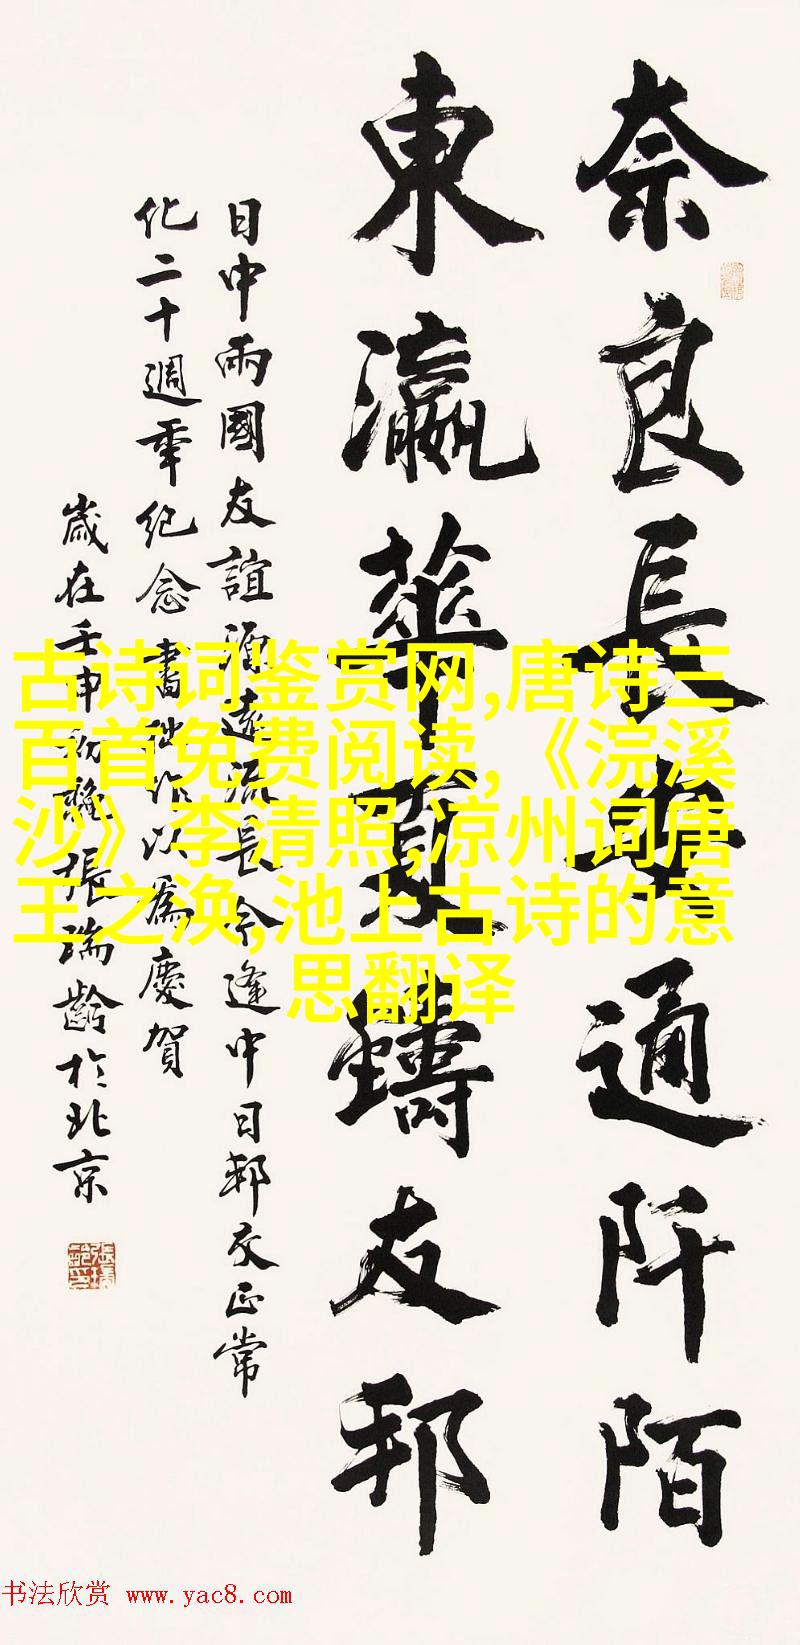 奈良長安通阡陌
東瀛華夏鑄友邦
日中兩國友誼源遠流長今逢中日邦交正常
化二十週年紀念書此作以為慶賀
歲在壬申初
張瑞齡於北京
古诗词鉴赏网,唐诗三
百首免费阅读,《浣溪
沙》李清照,凉州词唐
王之涣,池上古诗的意
思翻译
书法欣赏 www.yac8.com